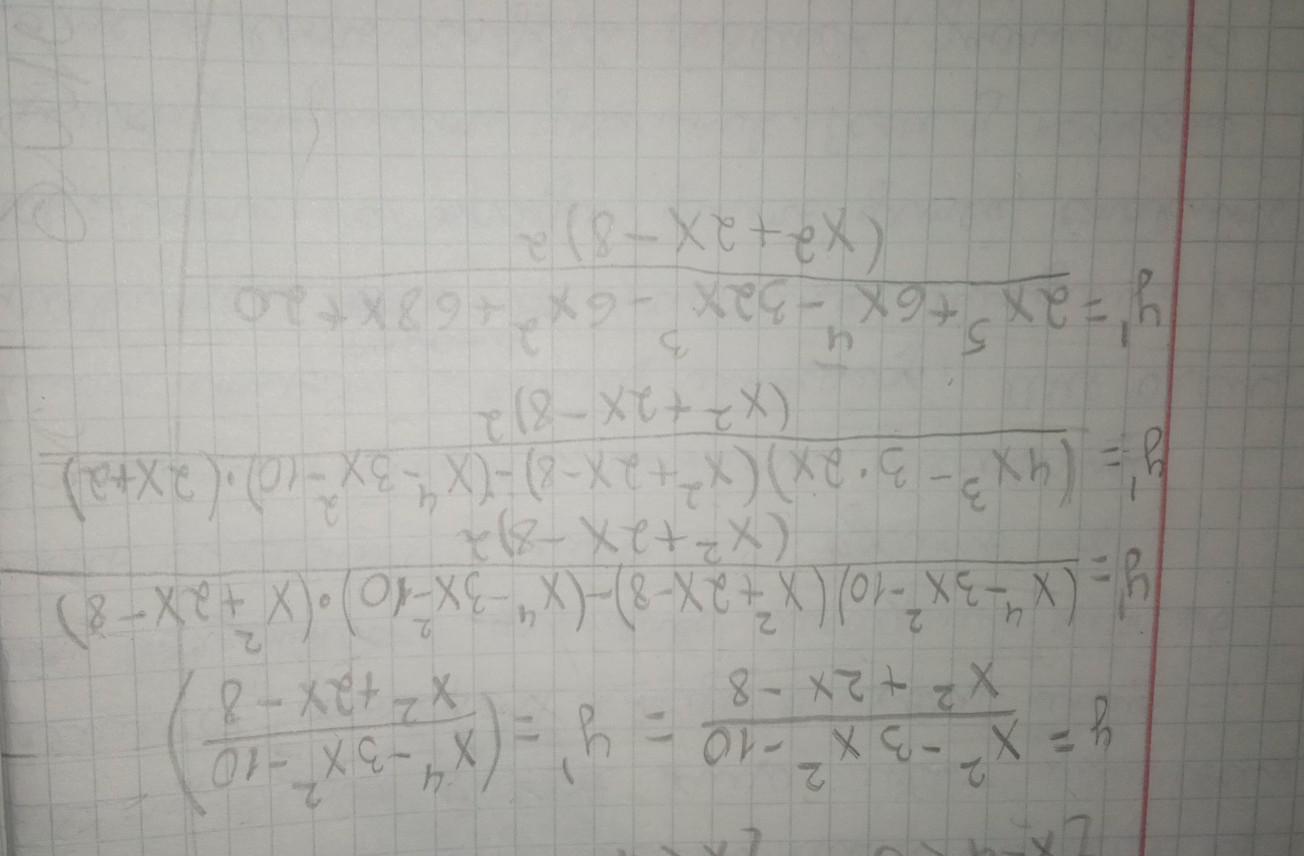 y = \frac{x^2 - 3x^2 - 10}{x^2 + 2x - 8} = y' = \left(\frac{x^4 - 3x^2 - 10}{x^2 + 2x - 8}\right)
y' = \frac{(x^4 - 3x^2 - 10)(x^2 + 2x - 8) - (x^4 - 3x^2 - 10) \cdot (x^2 + 2x - 8)}{(x^2 + 2x - 8)^2}
y' = \frac{(4x^3 - 3 \cdot 2x)(x^2 + 2x - 8) - (x^4 - 3x^2 - 10) \cdot (2x + 2)}{(x^2 + 2x - 8)^2}
y' = \frac{2x^5 + 6x^4 - 32x^3 - 6x^2 + 68x + 20}{(x^2 + 2x - 8)^2}